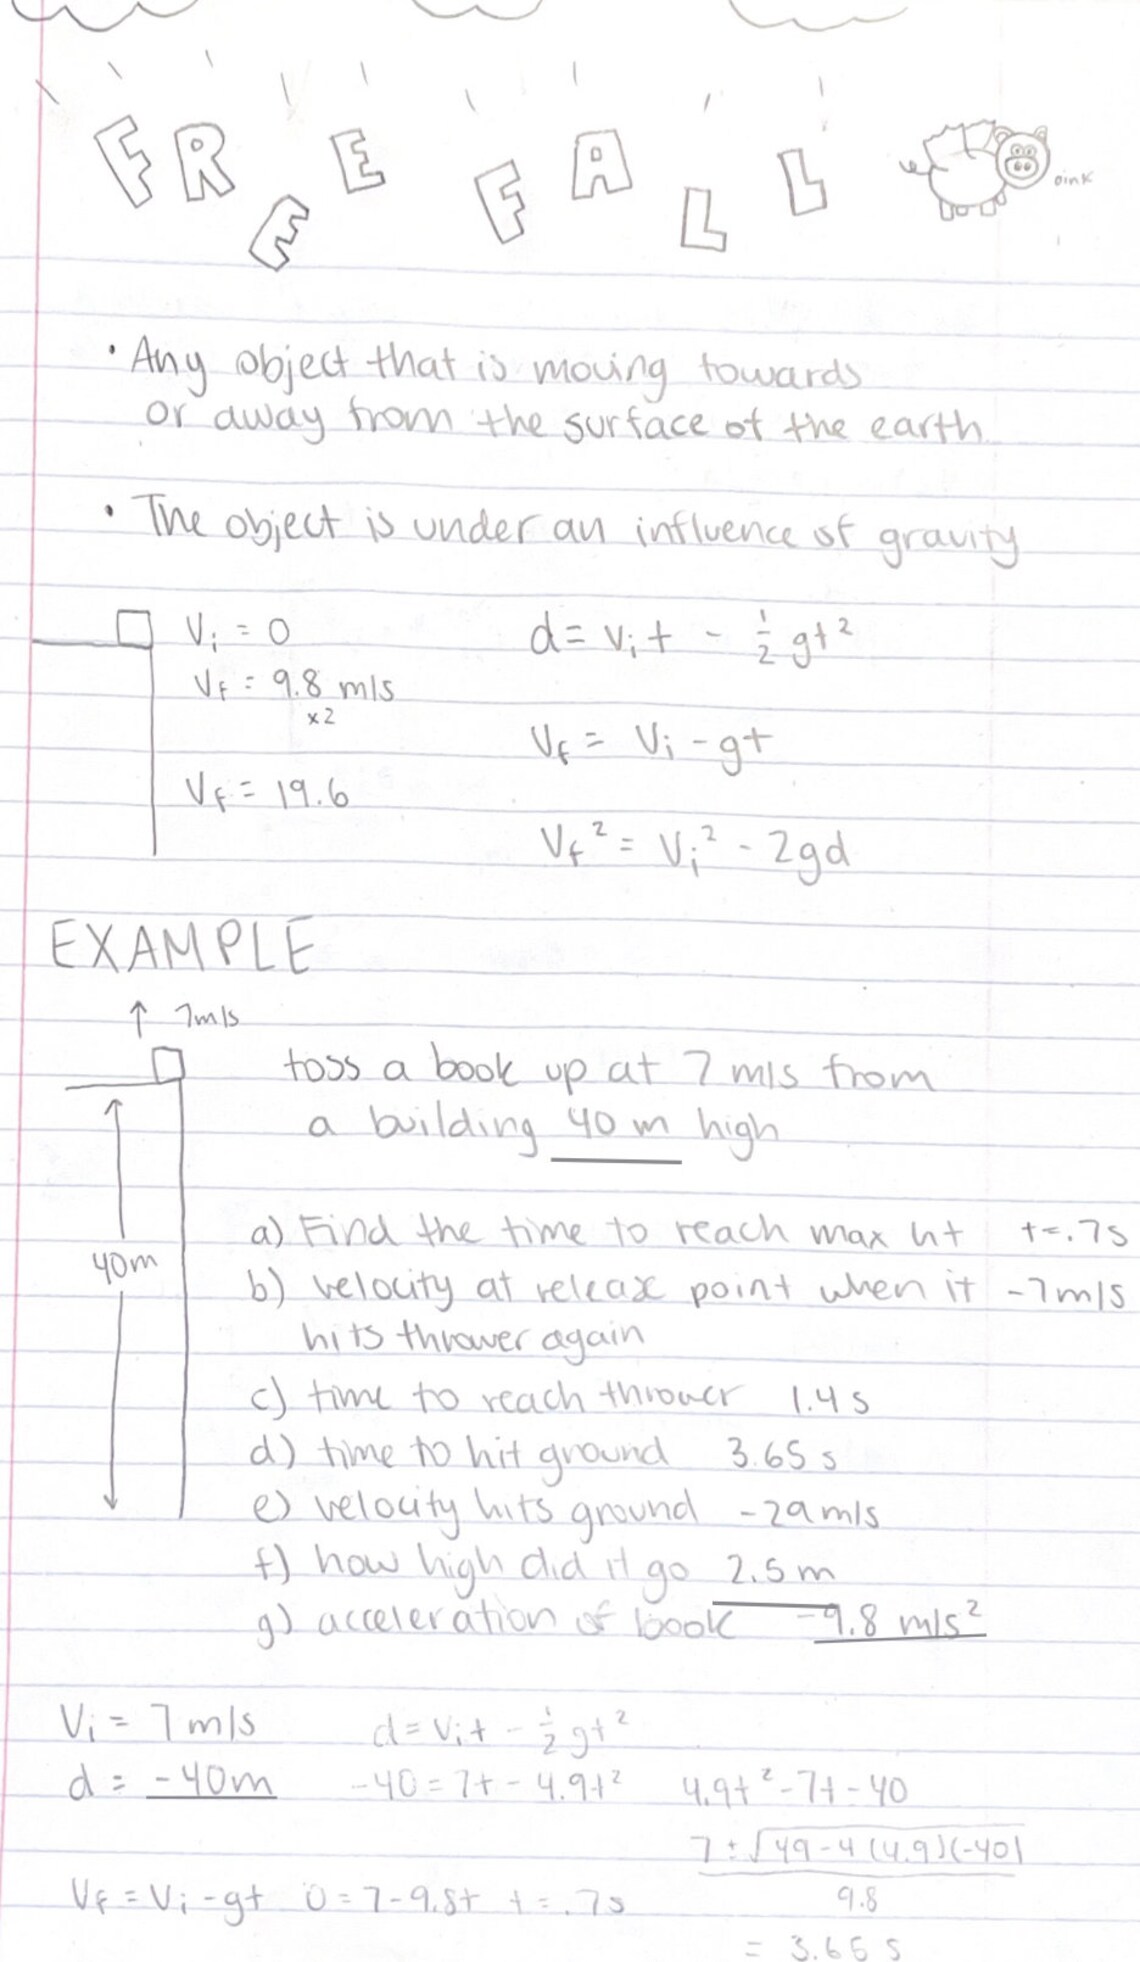 FREE FALL
oink
• Any object that is moving towards
or away from the surface of the earth
• The object is under an influence of gravity
Vi = 0
Vf = 9.8 m/s
x2
Vf = 19.6
d = vit - 1/2 gt²
Vf = Vi - gt
Vf² = Vi² - 2gd
EXAMPLE
↑ 7m/s
toss a book up at 7 m/s from
a building 40 m high
40m
a) Find the time to reach max ht t=.7s
b) velocity at release point when it -7m/s
hits thrower again
c) time to reach thrower 1.4 s
d) time to hit ground 3.65 s
e) velocity hits ground -29 m/s
f) how high did it go 2.5 m
g) acceleration of book -9.8 m/s²
Vi = 7 m/s d = vit - 1/2 gt²
d = -40m -40 = 7t - 4.9t² 4.9t² - 7t - 40
7 ± √49 - 4 (4.9)(-40)
9.8
Vf = Vi - gt 0 = 7 - 9.8t t = .7s
= 3.65 s